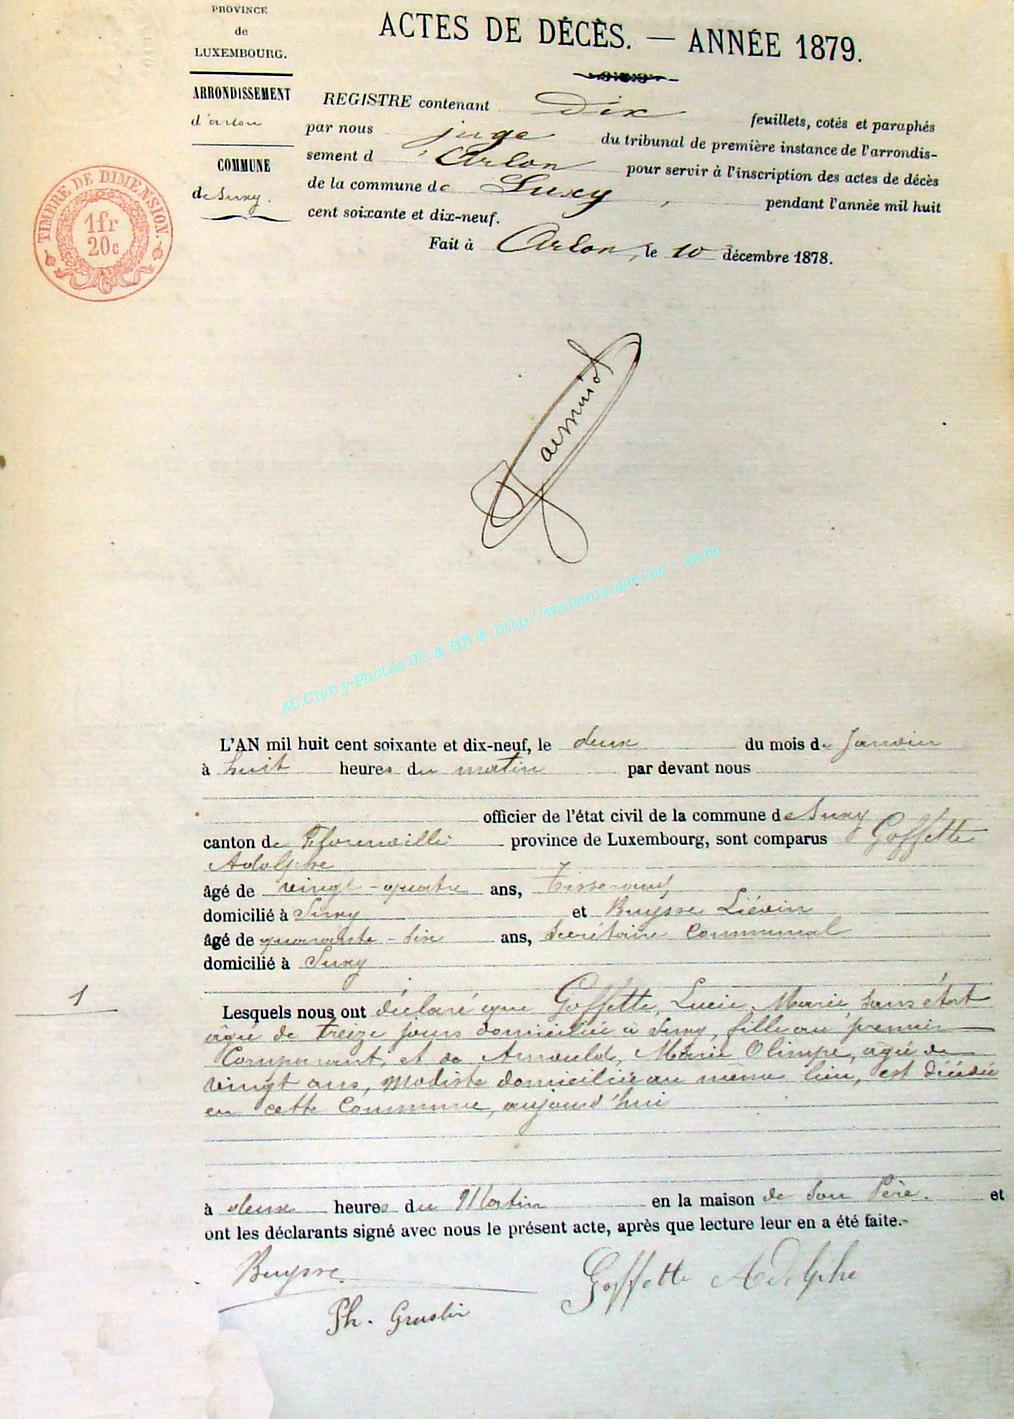 PROVINCE
de
LUXEMBOURG.
ARRONDISSEMENT
d'arlon
COMMUNE
de Suxy.
TIMBRE DE DIMENSION.
1fr
20c
ACTES DE DÉCÈS. — ANNÉE 1879.
REGISTRE contenant Dix feuillets, cotés et paraphés
par nous juge du tribunal de première instance de l'arrondis-
sement d'Arlon pour servir à l'inscription des actes de décès
de la commune de Suxy, pendant l'année mil huit
cent soixante et dix-neuf.
Fait à Arlon, le 10 décembre 1878.
AC Chiny-Photos JC & HB ® http//wallonia-asbl.be - deflo
L'AN mil huit cent soixante et dix-neuf, le deux du mois de Janvier
à huit heures du matin par devant nous
officier de l'état civil de la commune de Suxy
canton de Florenville province de Luxembourg, sont comparus Goffette
Adolphe
âgé de vingt-quatre ans, Tisserand,
domicilié à Suxy et Buysse Liévin
âgé de quarante-six ans, Secrétaire Communal
domicilié à Suxy
1
Lesquels nous ont déclaré que Goffette, Lucie, Marie, sans état
âgée de treize jours domiciliée à Suxy, fille au premier
Comparant, et de Arnould, Marie Olimpe, agée de
vingt ans, modiste domiciliée au même lieu, est décédée
en cette Commune, aujourd'hui
à deux heures du Matin en la maison de Son Père. et
ont les déclarants signé avec nous le présent acte, après que lecture leur en a été faite.-
Buysse.
Goffette Adolphe
Ph.